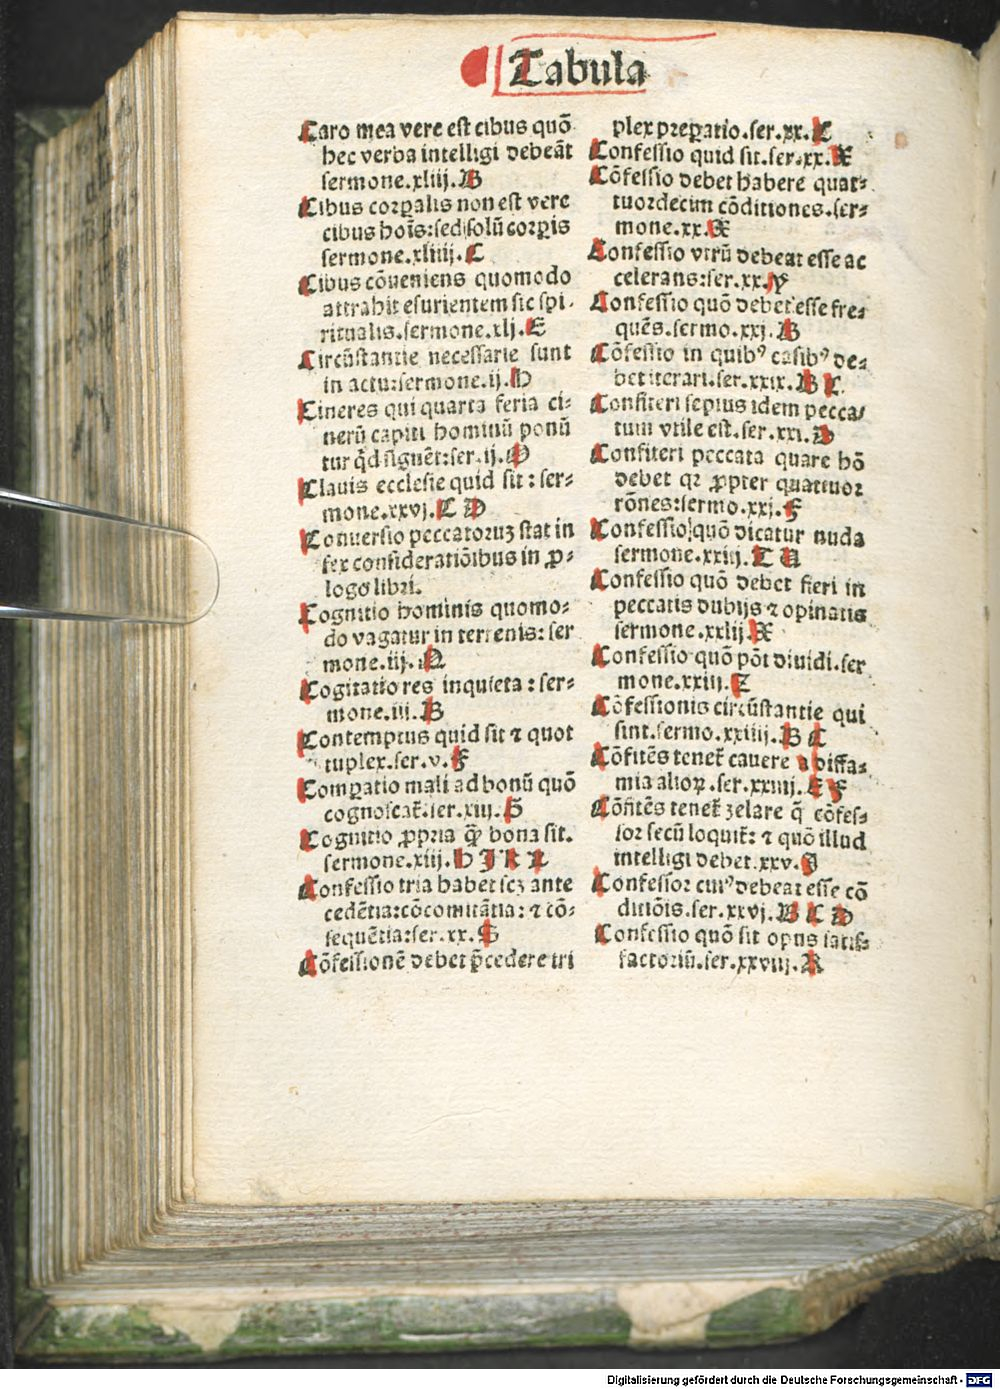 Tabula
Caro mea vere est cibus quō
hec verba intelligi debeāt
sermone.xliij.B
Cibus corꝑalis non est vere
cibus hoīs:sed solū corꝑis
sermone.xliiij.C
Cibus cōueniens quomodo
attrahit esurientem sic spi-
ritualis.sermone.xlj.E
Circūstantie necessarie sunt
in actu:sermone.ij.H
Cineres qui quarta feria ci-
nerū capiti hominū ponū
tur qd̄ signēt:ser.ij.O
Clauis ecclesie quid sit:ser-
mone.xxvj.C D
Conuersio peccatoruꝫ stat in
sex consideratiōibus in ꝓ-
logo libri.
Cognitio hominis quomo-
do vagatur in terrenis:ser
mone.iij.A
Cogitatio res inquieta:ser-
mone.iii.B
Contemptus quid sit ⁊ quot
tuplex.ser.v.F
Comꝑatio mali ad bonū quō
cognoscat̄.ser.xiij.G
Cognitio ꝓpria q̄ꝫ bona sit.
sermone.xiij.H J K L
Confessio tria habet scꝫ ante
cedētia:cōcomitātia:⁊ cō-
sequētia:ser.xx.S
Cōfessionē debet p̄cedere tri
plex preꝑatio.ser.xx.C
Confessio quid sit.ser.xx.X
Cōfessio debet habere quat-
tuordecim cōditiones.ser-
mone.xx.X
Confessio vtrū debeat esse ac
celerans:ser.xx.Y
Confessio quō debet esse fre-
quēs.sermo.xxj.B
Cōfessio in quibꝰ casibꝰ de-
bet iterari.ser.xxix.B C
Confiteri sepius idem pecca-
tum vtile est.ser.xxi.D
Confiteri peccata quare hō
debet qꝛ ꝓpter quattuor
rōnes:sermo.xxj.F
Confessio quō dicatur nuda
sermone.xxiij.T U
Confessio quō debet fieri in
peccatis dubijs ⁊ opinatis
sermone.xxiij.X
Confessio quō pōt diuidi.ser
mone.xxiij.Z
Cōfessionis circūstantie qui
sint.sermo.xxiiij.B C
Cōfitēs tenet̄ cauere a diffa-
mia alioꝝ.ser.xxiiij.E F
Cōfitēs tenet̄ zelare q̄ cōfes-
sor secū loquit̄:⁊ quō illud
intelligi debet.xxv.J
Confessor cuiꝰ debeat esse cō
ditiōis.ser.xxvj.B C D
Confessio quō sit opus satis-
factoriū.ser.xxviij.R
Digitalisierung gefördert durch die Deutsche Forschungsgemeinschaft - DFG